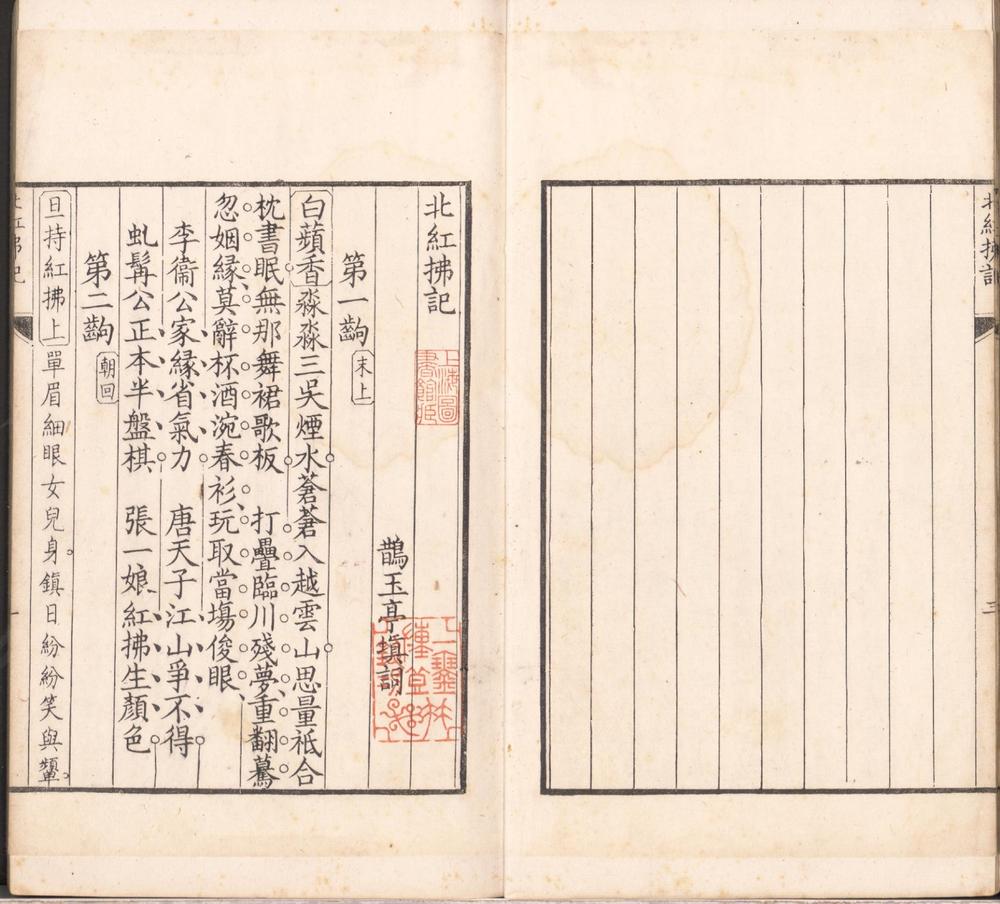 北紅拂記
北紅拂記
上海圖書館藏
鵲玉亭塡詞
第一齣 末上
白蘋香淼淼三吳煙水蒼蒼入越雲山思量祗合
枕書眠無那舞裙歌板 打疊臨川殘夢重翻驀
忽姻縁莫辭杯酒涴春衫玩取當塲俊眼
李衞公家縁省氣力 唐天子江山爭不得
虬髯公正本半盤棋 張一娘紅拂生顏色
第二齣 朝回
旦持紅拂上單眉細眼女兒身鎮日紛紛笑與顰
北紅拂記